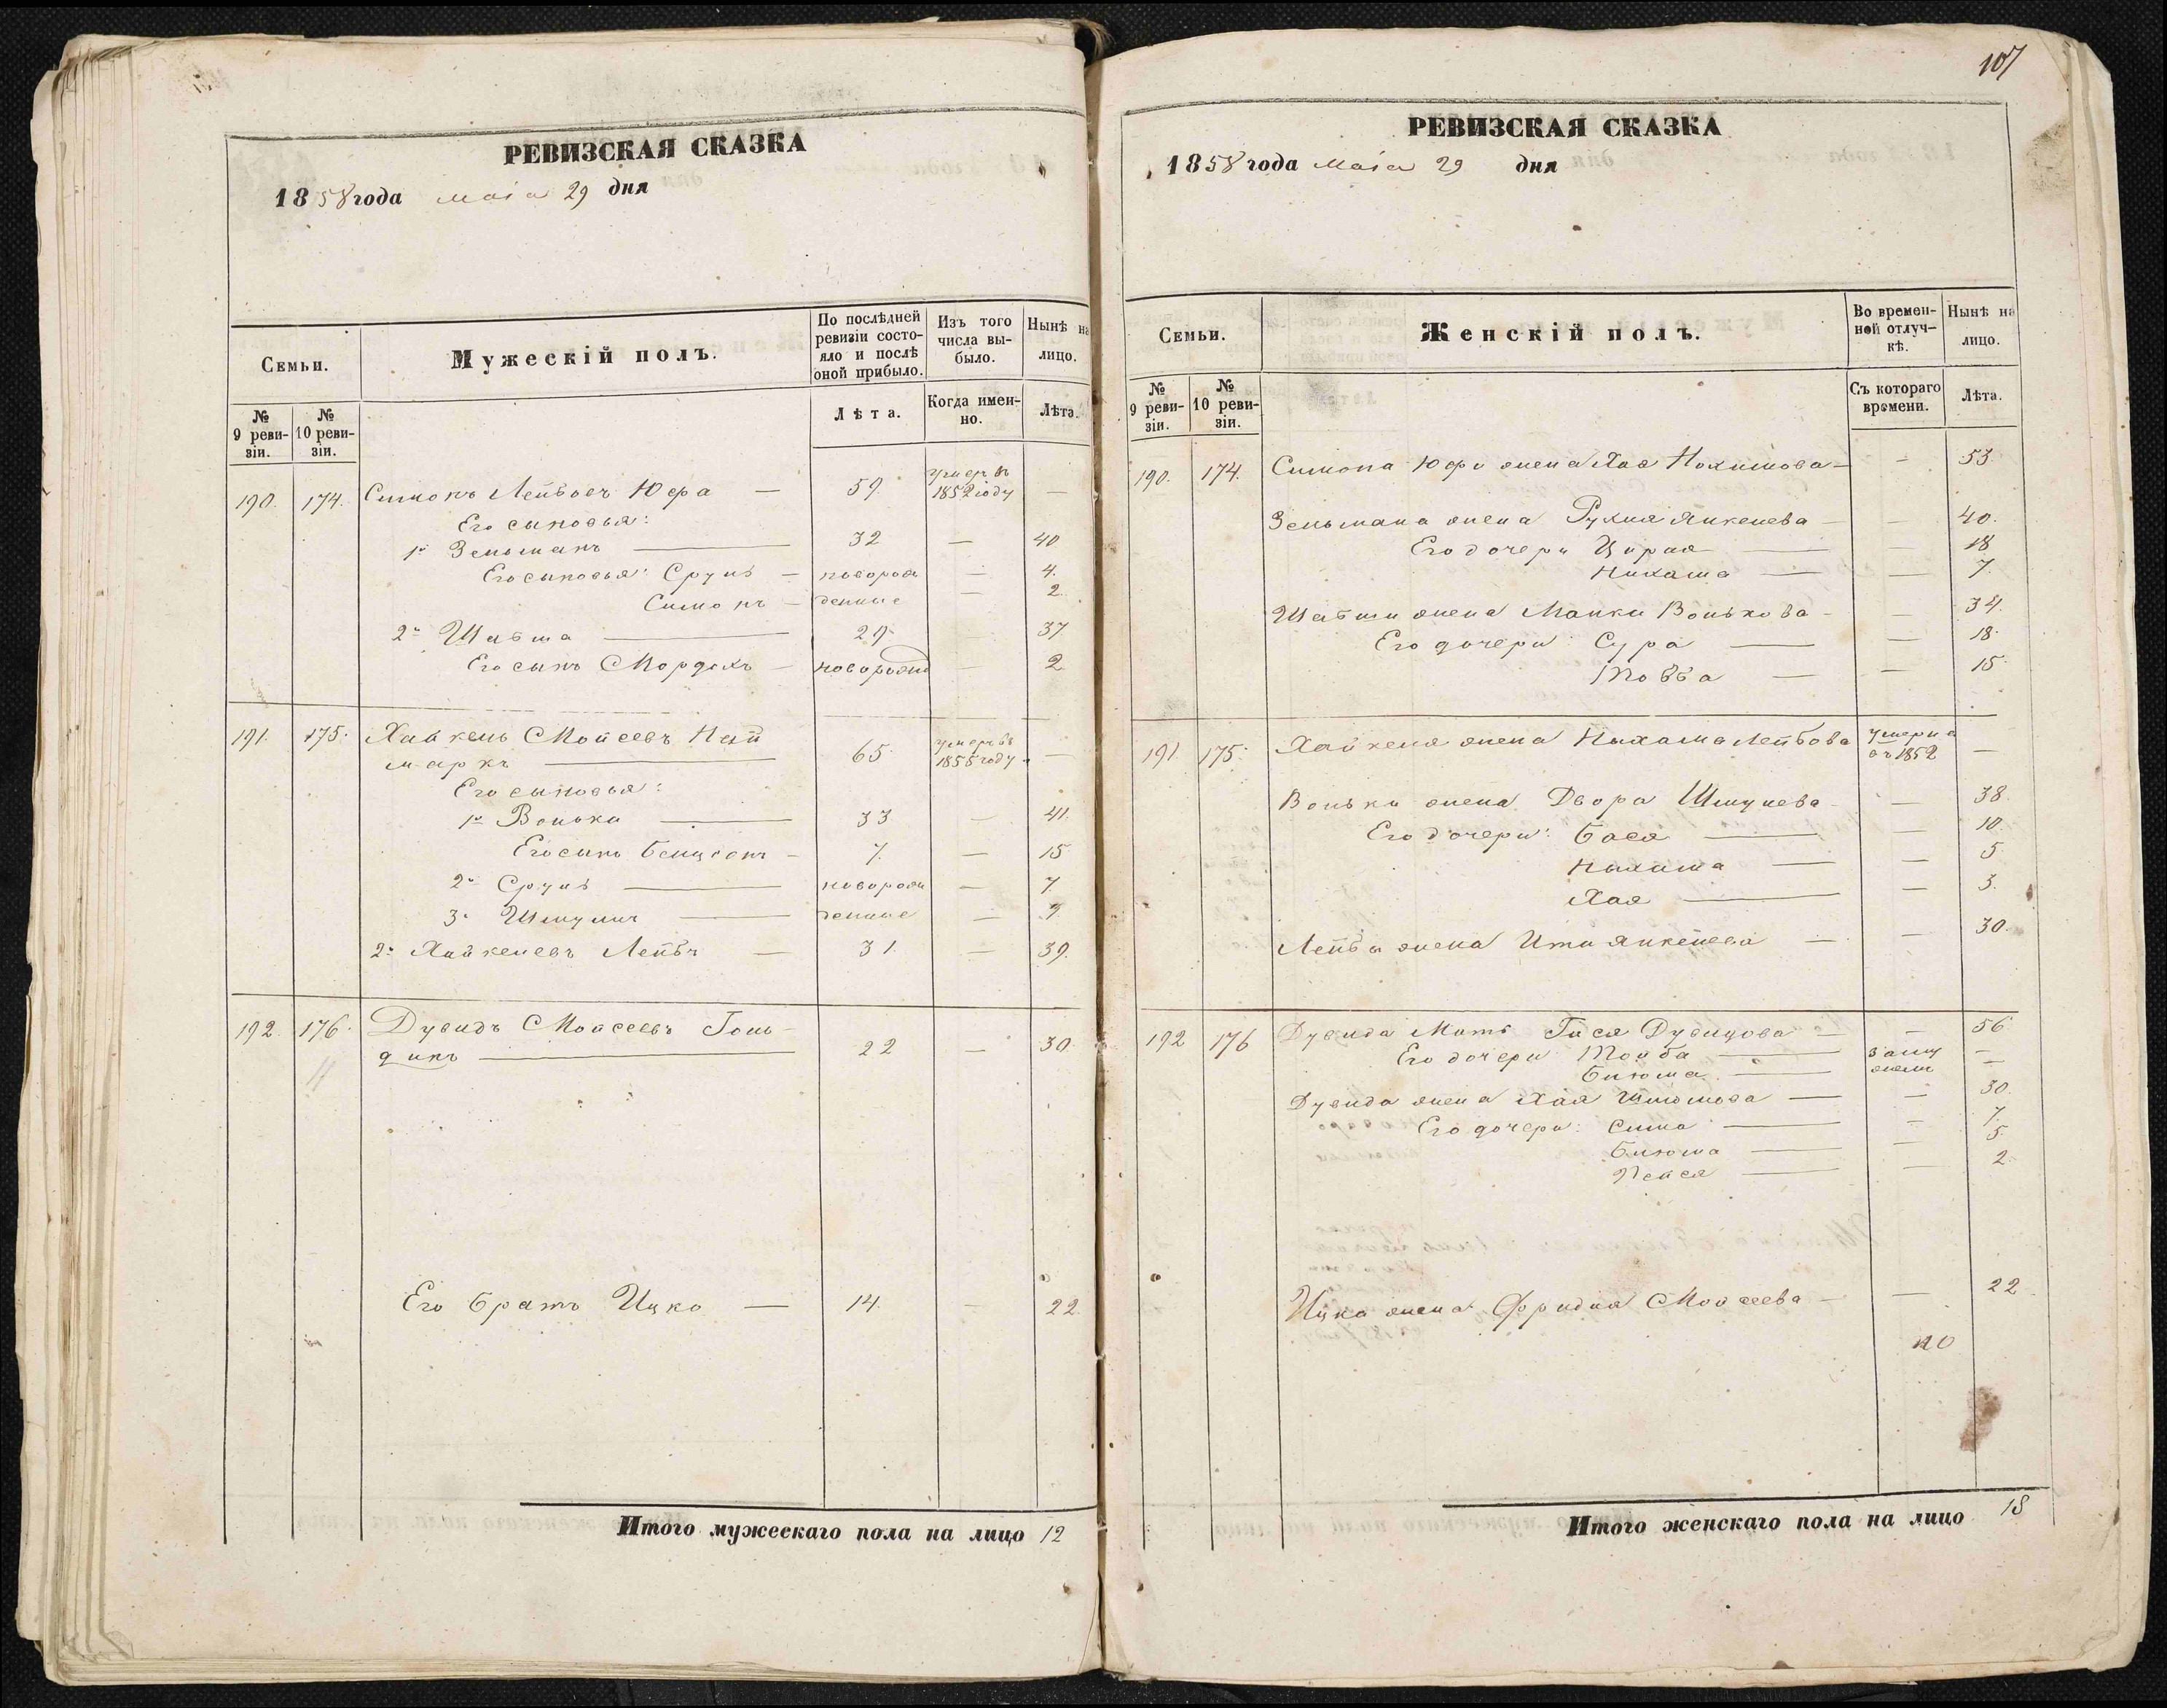 РЕВИЗСКАЯ СКАЗКА
1858 года Маія 29 дня
Семьи.
Мужескій полъ.
По послѣдней ревизіи состо-
яло и послѣ
оной прибыло.
Изъ того
числа вы-
было.
Нынѣ на
лицо.
№
9 реви-
зіи.
№
10 реви-
зіи.
Лѣта.
Когда имен-
но.
Лѣта.
190. 174. Симонъ Лейбовъ Юфа — 59 умеръ въ 1852 году —
Его сыновья:
1й Зельманъ — 32 — 40
Его сыновья: Сруль — новорож — 4.
Симонъ — денные — 2
2й Шабша — 29 37
Его сынъ Мордохъ — новорожд — 2
191. 175. Хайкель Мойсеевъ Ней
маркъ — 65 умеръ въ 1855 году —
Его сыновья:
1й Вольки — 33 — 41.
Его сынъ Бенцiонъ — 7. — 15
2й Сруль — новорож — 7
3й Шмуйла — денные —
2й Хайкелевъ Лейба — 31. — 39.
192. 176. Дувидъ Моисеевъ Голь-
динъ — 22 — 30
Его братъ Ицко — 14. — 22.
Итого мужескаго пола на лицо 12
107
РЕВИЗСКАЯ СКАЗКА
1858 года Маія 29 дня
Семьи.
Женскій полъ.
Во времен-
ной отлуч-
кѣ.
Нынѣ на
лицо.
№
9 реви-
зіи.
№
10 реви-
зіи.
Съ котораго
времени.
Лѣта.
190. 174. Симона Юфи жена Хая Нохимова — — 53.
Зельмана жена Рухля Янкелева — — 40.
Его дочери Цирля — — 18
Нихама — — 7.
Шабши жена Манки Волькова — — 34.
Его дочери: Сура — — 18.
Товба — — 15.
191. 175. Хайкеля жена Ныхама Лейбова умерла въ 1852 —
Вольки жена Двора Шмулева — — 38.
Его дочери: Бася — 10.
Ныхама — — 5
Хая — — 3.
Лейбы жена Ита Янкелева — — 30.
192 176 Дувида Мать Гися Дувидова — — 56
Его дочери Тойба — заму —
Блюма — жемъ —
Дувида жена Хая Шлiомова — — 30.
Его дочери: Сима — — 7.
Блюма — — 5.
Пейся — — 2.
Ицка жена Фридля Мойсеева — — 22.
Итого женскаго пола на лицо 18